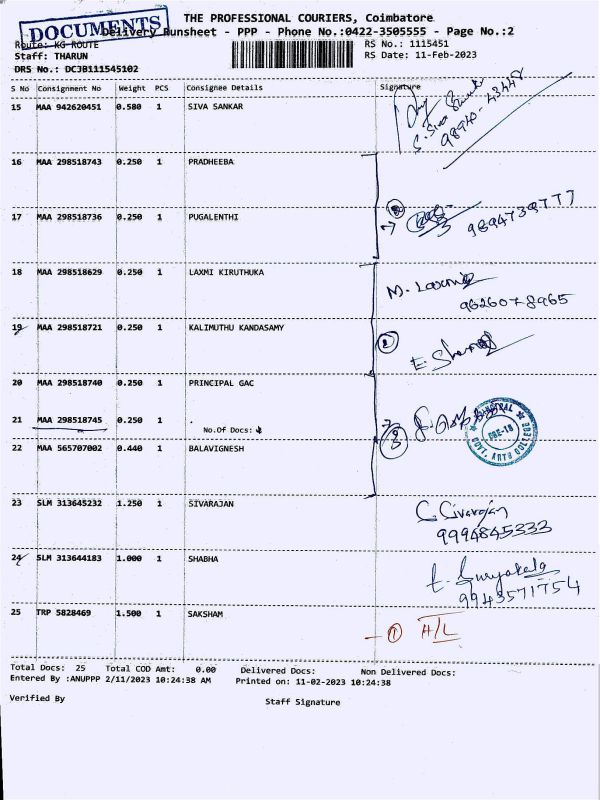 DOCUMENTS
THE PROFESSIONAL COURIERS, Coimbatore
Delivery Runsheet - PPP - Phone No.:0422-3505555 - Page No.:2
Route: KG-ROUTE
RS No.: 1115451
Staff: THARUN
RS Date: 11-Feb-2023
DRS No.: DCJB111545102
S No Consignment No Weight PCS Consignee Details Signature
15 MAA 942620451 0.580 1 SIVA SANKAR
S. Siva
98940-43448
16 MAA 298518743 0.250 1 PRADHEEBA
17 MAA 298518736 0.250 1 PUGALENTHI
9894739777
18 MAA 298518629 0.250 1 LAXMI KIRUTHUKA
M. Laxmi
9626078965
19 MAA 298518721 0.250 1 KALIMUTHU KANDASAMY
20 MAA 298518740 0.250 1 PRINCIPAL GAC
21 MAA 298518745 0.250 1 .
No.Of Docs:
3
GOVT. ARTS COLLEGE
CBE-18
22 MAA 565707002 0.440 1 BALAVIGNESH
23 SLM 313645232 1.250 1 SIVARAJAN
C. Sivarajan
9994845333
24 SLM 313644183 1.000 1 SHABHA
t. Suryakala
9943571754
25 TRP 5828469 1.500 1 SAKSHAM
- 1 A/L
Total Docs: 25 Total COD Amt: 0.00 Delivered Docs: Non Delivered Docs:
Entered By :ANUPPP 2/11/2023 10:24:38 AM Printed on: 11-02-2023 10:24:38
Verified By
Staff Signature